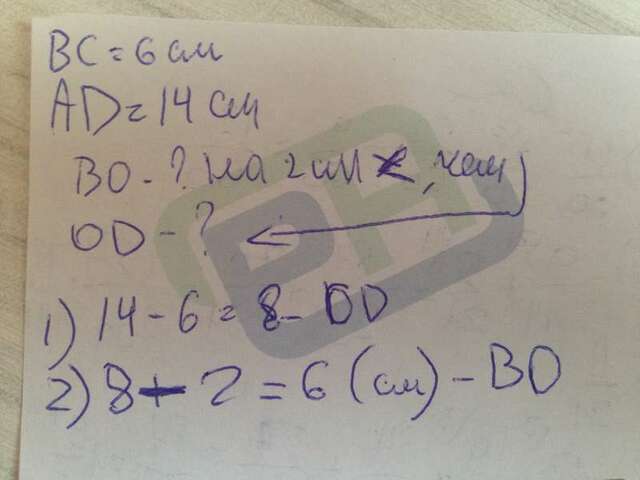 BC = 6 см
AD = 14 см
BO - ? на 2 см <, чем
OD - ?
1) 14 - 6 = 8 - OD
2) 8 + 2 = 6 (см) - BO